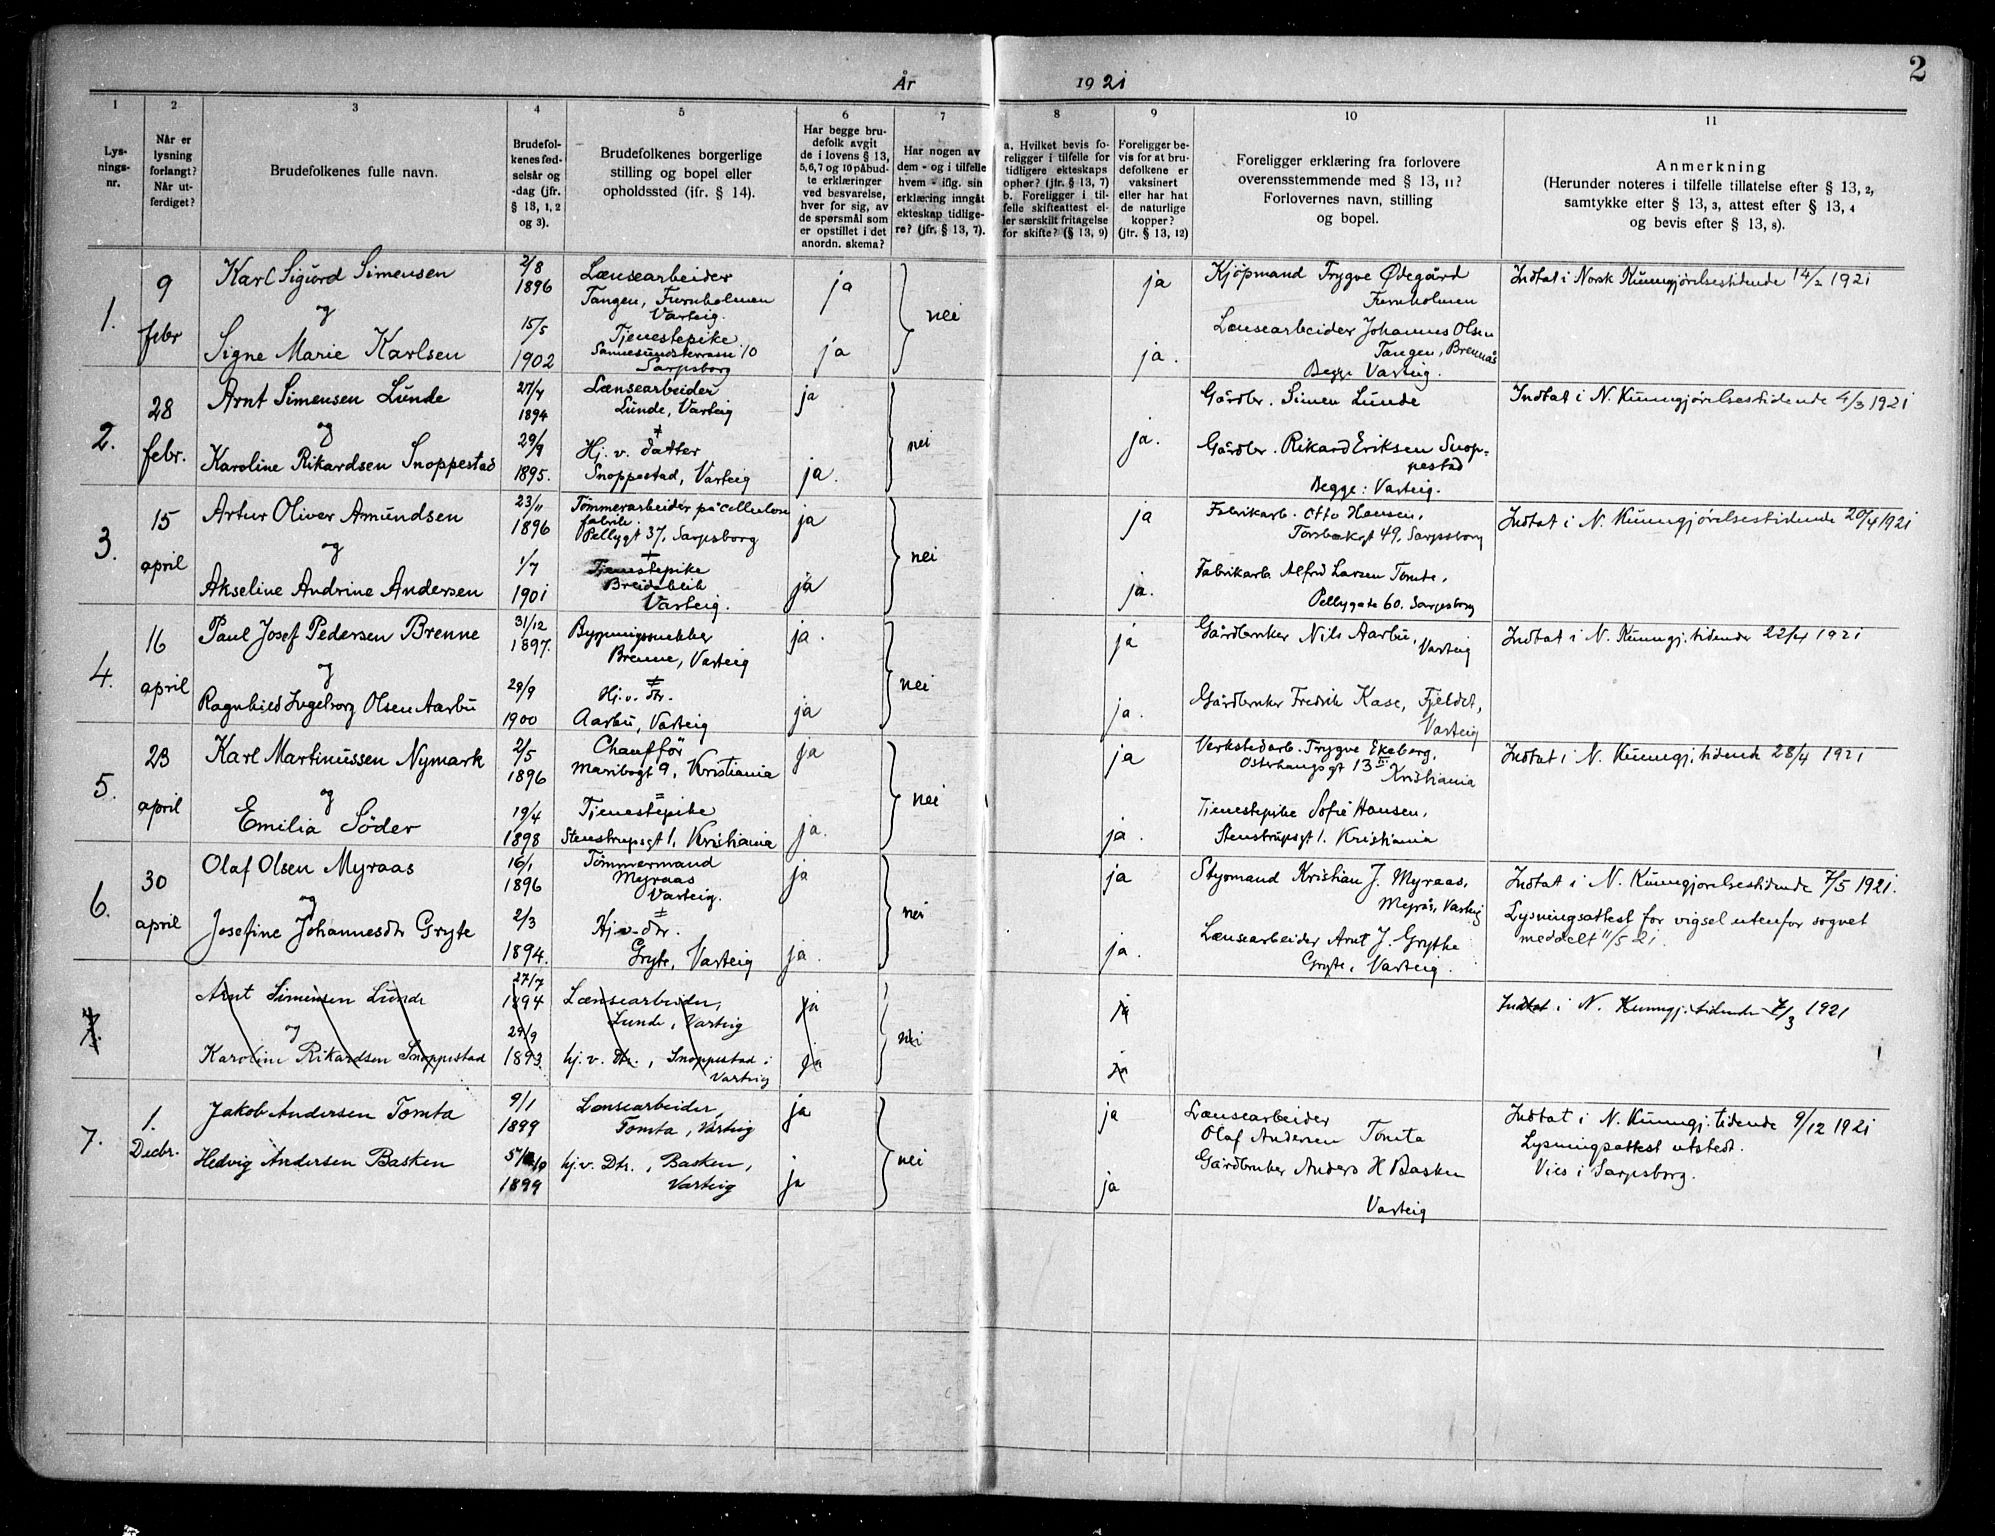 2
År 1921
1 2 3 4 5 6 7 8 9 10 11
Lys-
nings-
nr.
Når er
lysning
forlangt?
Når ut-
ferdiget?
Brudefolkenes fulle navn.
Brudefol-
kenes fød-
selsår og
-dag (jfr.
§ 13, 1, 2
og 3).
Brudefolkenes borgerlige
stilling og bopel eller
opholdssted (ifr. § 14).
Har begge bru-
defolk avgit
de i lovens § 13,
5,6,7 og 10 påbud-
te erklæringer
ved besvarelse,
hver for sig, av
de spørsmål som
er opstillet i det
anordn. skema?
Har nogen av
dem - og i tilfelle
hvem - iflg. sin
erklæring inngåt
ekteskap tidlige-
re? (jfr. § 13, 7).
a. Hvilket bevis fo-
religger i tilfelle for
tidligere ekteskaps
ophør? (jfr. § 13, 7)
b. Foreligger i til-
felle skifteattest el-
ler særskilt fritagelse
for skifte? (§ 13, 9)
Foreligger be-
vis for at bru-
defolkene er
vaksinert
eller har hat
de naturlige
kopper?
(jfr. § 13, 12)
Foreligger erklæring fra forlovere
overensstemmende med § 13, 11?
Forlovernes navn, stilling
og bopel.
Anmerkning
(Herunder noteres i tilfelle tillatelse efter § 13, 2,
samtykke efter § 13, 3, attest efter § 13, 4
og bevis efter § 13, 8).
1.
9
febr
Karl Sigurd Simensen
og
Signe Marie Karlsen
2/8
1896
15/5
1902
Lænsearbeider
Tangen, Furnholmen
Varteig.
Tjenestepike
Sannesundsterrasse 10
Sarpsborg
ja
ja
nei
ja
ja.
Kjøpmand Trygve Ødegård
Furnholmen
Lænsearbeider Johannes Olsen
Tangen, Brennås
Begge Varteig.
Indtat i Norsk Kunngjørelsestidende 14/2 1921
2.
28
febr.
Arnt Simensen Lunde
og
Karoline Rikardsen Snoppestad
27/7
1894
29/9
1895.
Lænsearbeider
Lunde, Varteig
Hj. v. datter
Snoppestad, Varteig
ja
ja.
nei
ja.
Gårdbr. Simen Lunde
Gårdbr. Rikard Eriksen Snop-
pestad
Begge: Varteig.
Indtat i N. Kunngjørelsestidende 4/3 1921
3.
15
april
Artur Oliver Amundsen
og
Akseline Andrine Andersen
23/11
1896
1/7
1901
Tømmerarbeider på cellulose
fabrik.
Pellygt 37, Sarpsborg
Tjenestepike
Varteig.
ja
ja
nei
ja
ja.
Fabrikarb. Otto Hansen,
Torsbækgt 49, Sarpsborg
Fabrikarb. Alfrid Larsen Tomte,
Pellygate 60. Sarpsborg
Indtat i N. Kunngjørelsestidende 20/4 1921
4.
16
april
Paul Josef Pedersen Brenne
og
Ragnhild Ingeborg Olsen Aarbu
31/12
1897.
29/9
1900
Bygningssnekker
Brenne, Varteig
Hj. v. dtr.
Aarbu, Varteig
ja.
ja
nei
ja
ja.
Gårdbruker Nils Aarbu,
Varteig
Gårdbruker Fredrik Kase, Fjeldet,
Varteig
Indtat i N. Kunngj. tidende 22/4 1921
5.
23
april
Karl Martinussen Nymark
og
Emilia Söder
2/5
1896
19/4
1898
Chauffør
Maribogt 9, Kristiania
Tjenestepike
Stenstrupsgt 1, Kristiania
ja
ja.
nei
ja
ja.
Verkstedarb. Trygve Ekeberg,
Osterhausgt 13 III
Kristiania
Tjenestepike Sofie Hansen,
Stenstrupsgt 1. Kristiania
Indtat i N. Kunngj. tidende 28/4 1921
6.
30
april
Olaf Olsen Myraas
og
Josefine Johannesdtr Gryte
16/1
1896
2/3
1894.
Tømmermand
Myraas
Varteig.
Hj. v. dtr.
Gryte, Varteig
ja
ja.
nei
ja
ja.
Styrmand Kristian J. Myraas,
Myrås, Varteig
Lænsearbeider Arnt J. Grythe
Gryte, Varteig.
Indtat i N. Kunngjørelsestidende 7/5 1921.
Lysningsattest for vigsel utenfor sognet
meddelt 11/5 21.
7.
Arnt Simensen Lunde
og
Karoline Rikardsen Snoppestad
27/7
1894
29/9
1893.
Lænsearbeider,
Lunde, Varteig
hj. v. Dtr., Snoppestad i
Varteig
ja
ja
nei
ja
ja
Indtat i N. Kunngj. tidende 7/3 1921
7.
1.
Decbr.
Jakob Andersen Tomta
Hedvig Andersen Basken
9/1
1899
1899
Lænsearbeider,
Tomta, Varteig
hj. v. Dtr., Basken,
Varteig
ja
ja
nei
ja
ja
Lænsearbeider
Olaf Andersen Tomta
Gårdbruker Anders H Basken
Varteig
Indtat i N. Kunngj. tidende 9/12 1921
Lysningsattest utstedt.
Vies i Sarpsborg.